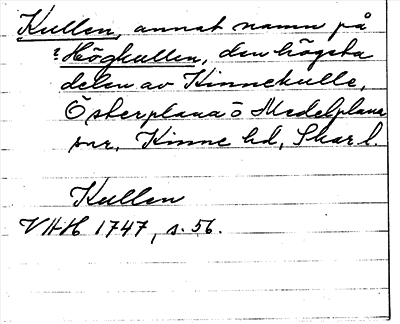 Kullen, annat namn på
? Högkullen, den högsta
delen av Kinnekulle,
Österplana o Medelplana
snr, Kinne hd, Skar l.
Kullen
VHH 1747, s. 56.